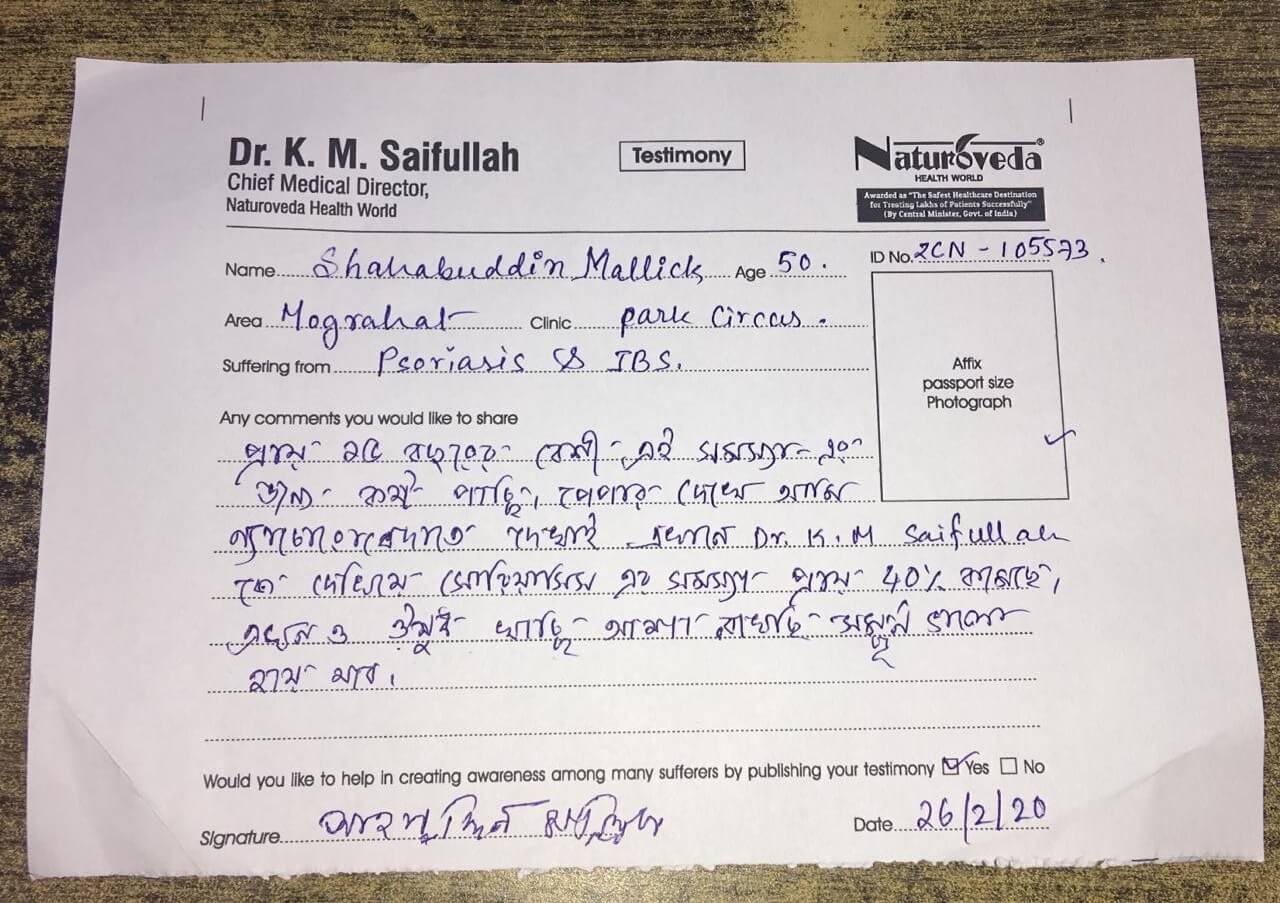 Dr. K. M. Saifullah
Chief Medical Director,
Naturoveda Health World
Testimony
Naturoveda®
HEALTH WORLD
Awarded as "The Safest Healthcare Destination
for Treating Lakhs of Patients Successfully"
(By Central Minister, Govt. of India)
Name Shahabuddin Mallick Age 50. ID No. 2CN - 105573.
Area Mograhat Clinic park Circus.
Suffering from Psoriasis & IBS.
Affix
passport size
Photograph
Any comments you would like to share
প্রায় বছরের বেশী এই সমস্যার
কষ্ট পাচ্ছি, পেপারে দেখে আমি
দেখাই এখানে Dr. K. M Saifullah
কে দেখিয়ে এই সমস্যা প্রায় 40% কমেছে,
এখন ও ঔষুধ খাচ্ছি আশা রাখছি সম্পূর্ন ভালো
হয়ে যাব।
Would you like to help in creating awareness among many sufferers by publishing your testimony Yes No
Signature Date 26/2/20